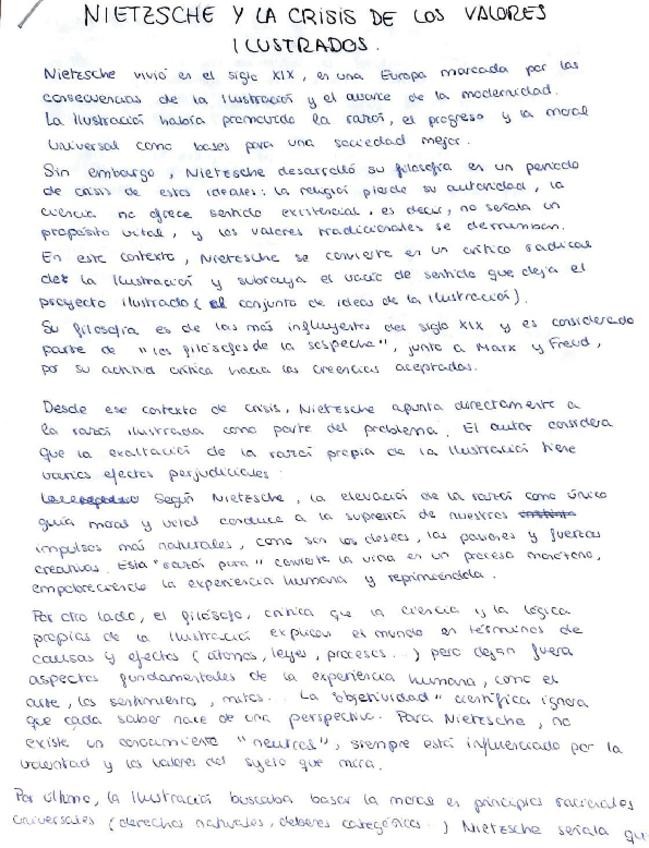 NIETZSCHE Y LA CRISIS DE LOS VALORES
ILUSTRADOS.
Nietzsche vivió en el siglo XIX, en una Europa marcada por las
consecuencias de la Ilustración y el avance de la modernidad.
La Ilustración había promovido la razón, el progreso y la moral
universal como bases para una sociedad mejor.
Sin embargo, Nietzsche desarrolló su filosofía en un periodo
de crisis de estos ideales: la religión pierde su autoridad, la
ciencia no ofrece sentido existencial, es decir, no señala un
propósito vital, y los valores tradicionales se derrumban.
En este contexto, Nietzsche se convierte en un crítico radical
de la Ilustración y subraya el vacío de sentido que deja el
proyecto ilustrado (el conjunto de ideas de la Ilustración).
Su filosofía es de las más influyentes del siglo XIX y es considerado
parte de "los filósofos de la sospecha", junto a Marx y Freud,
por su actitud crítica hacia las creencias aceptadas.
Desde ese contexto de crisis, Nietzsche apunta directamente a
la razón ilustrada como parte del problema. El autor considera
que la exaltación de la razón propia de la Ilustración tiene
varios efectos perjudiciales:
Según Nietzsche, la elevación de la razón como único
guía moral y vital conduce a la supresión de nuestros
impulsos más naturales, como son los deseos, las pasiones y fuerzas
creativas. Esta "razón pura" convierte la vida en un proceso monótono,
empobreciendo la experiencia humana y reprimiéndola.
Por otro lado, el filósofo, critica que la ciencia y la lógica
propias de la Ilustración explican el mundo en términos de
causas y efectos (átomos, leyes, procesos...) pero dejan fuera
aspectos fundamentales de la experiencia humana, como el
arte, los sentimientos, mitos... La "objetividad" científica ignora
que cada saber nace de una perspectiva. Para Nietzsche, no
existe un conocimiento "neutral", siempre está influenciado por la
voluntad y los valores del sujeto que mira.
Por último, la Ilustración buscaba basar la moral en principios racionales
universales (derechos naturales, deberes categóricos..) Nietzsche señala que